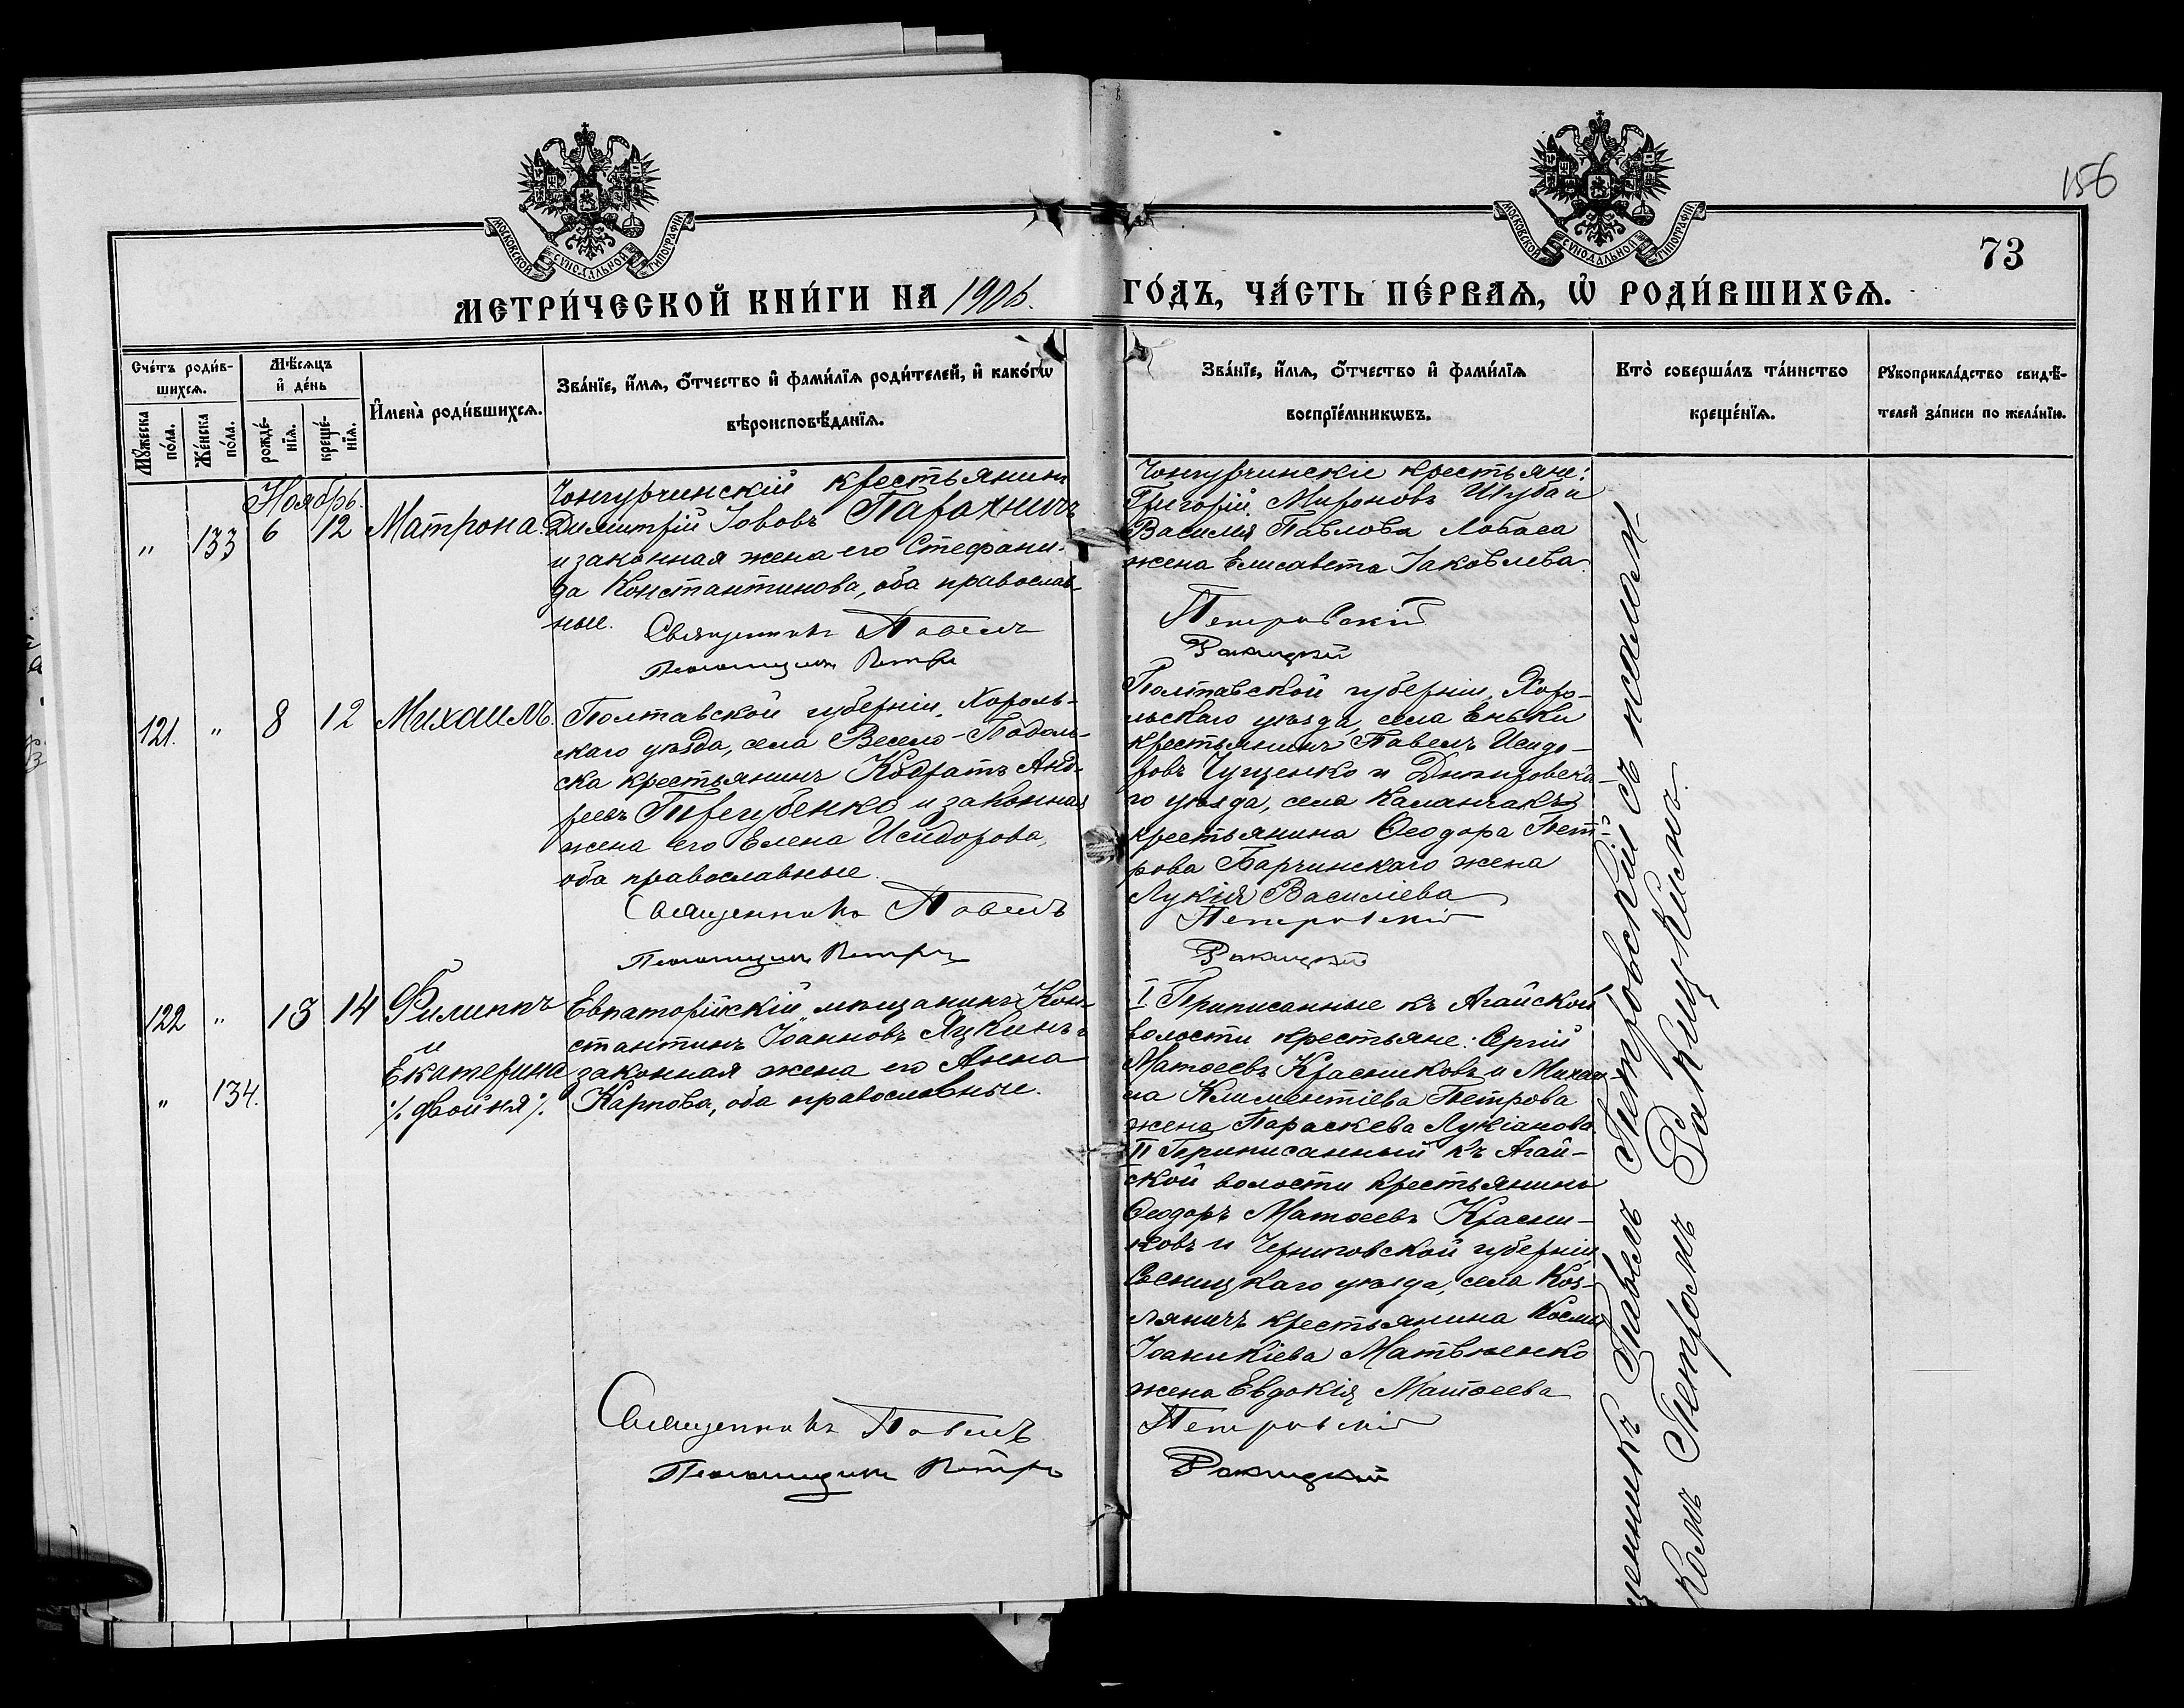 156
73
МОСКОВСКОЙ СУНОДАЛЬНОЙ ТИПОГРАФІИ
МОСКОВСКОЙ СУНОДАЛЬНОЙ ТИПОГРАФІИ
МЕТРИ́ЧЕСКОЙ КНИ́ГИ НА 1906. ГО́ДЪ, ЧА́СТЬ ПЕ́РВАѦ, Ѡ҆ РОДИ́ВШИХСѦ.
Сче́тъ роди́в-
шихсѧ.
Мꙋ́жеска по́ла.
Же́нска по́ла.
Мѣ́сѧцъ
и҆ де́нь
рожде́-
нїѧ.
креще́-
нїѧ.
И҆мена̀ роди́вшихсѧ.
Зва́нїе, и҆́мѧ, ѻ҆́тчество и҆ фами́лїѧ роди́телей, и҆ како́гѡ
вѣроисповѣ́данїѧ.
Зва́нїе, и҆́мѧ, ѻ҆́тчество и҆ фами́лїѧ
воспрїе́мникѡвъ.
Кто̀ соверша́лъ та́инство
креще́нїѧ.
Рꙋкоприкла́дство свидѣ́-
телей за́писи по жела́нїю.
Ноябрь.
" 133 6 12 Матрона.
Чонгурчинскій крестьянинъ
Димитрій Іововъ Парахничъ
и законная жена его Стефани-
да Константинова, оба православ-
ные.
Священникъ Павелъ
Псаломщикъ Петръ
Чонгурчинскіе крестьяне:
Григорій Мироновъ Шуба и
Василія Павлова Лобаса
жена Елисавета Іаковлева.
Петровскій
Ракицкій
121. " 8 12 Михаилъ.
Полтавской губерніи, Хороль-
скаго уѣзда, села Весело-Подоль-
ска крестьянинъ Кодратъ Анд-
реевъ Трегубенко и законная
жена его Елена Исидорова,
оба православные.
Священникъ Павелъ
Псаломщикъ Петръ
Полтавской губерніи, Хоро-
льскаго уѣзда, села Еньки
крестьянинъ Павелъ Исидо-
ровъ Чущенко и Днѣпровска-
го уѣзда, села Каланчакъ
крестьянина Ѳеодора Пет-
рова Барчинскаго жена
Лукія Василіева
Петровскій
Ракицкій
122 " 13 14 Филиппъ
и
Екатерина
" 134.
·/. двойня ·/.
Евпаторійскій мѣщанинъ Кон-
стантинъ Іоанновъ Лукинъ и
законная жена его Анна
Карпова, оба православные.
Священникъ Павелъ
Псаломщикъ Петръ
I Приписанные къ Агайской
волости крестьяне: Сергій
Матѳеевъ Красниковъ и Михаи-
ла Климентіева Петрова
жена Параскева Лукіанова.
II Приписанный къ Агай-
ской волости крестьянинъ
Ѳеодоръ Матѳеевъ Красни-
ковъ и Черниговской губерніи,
Сосницкаго уѣзда, села Коз-
ляничъ крестьянина Космы
Іоаникіева Матвѣенко
жена Евдокія Матѳеева
Петровскій
Ракицкій
щенникъ Павелъ Петровскій съ псалом-
комъ Петромъ Ракицкимъ.